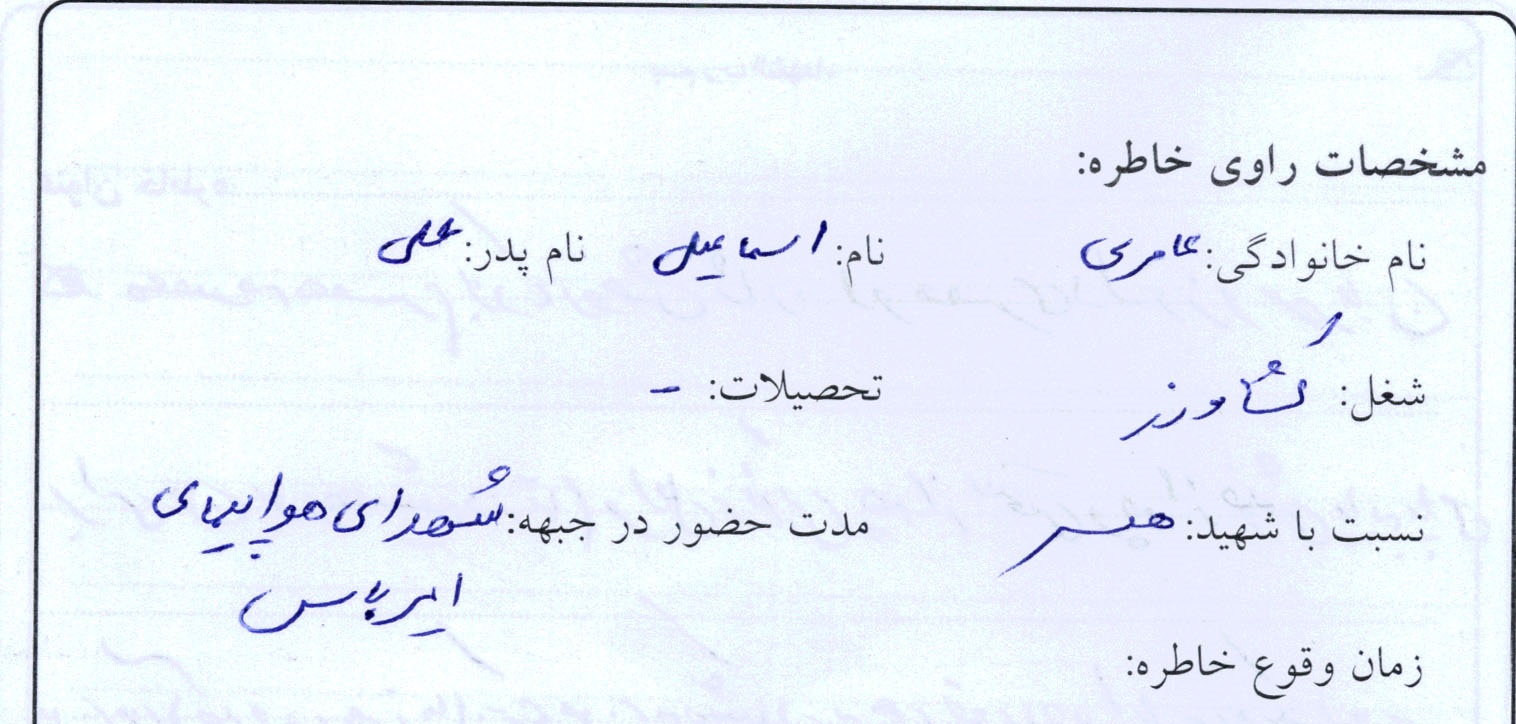 مشخصات راوی خاطره:
نام خانوادگی: عامری نام: اسماعیل نام پدر: علی
شغل: کشاورز تحصیلات: -
نسبت با شهید: همسر مدت حضور در جبهه: شهدای هواپیمای
ایرباس
زمان وقوع خاطره: